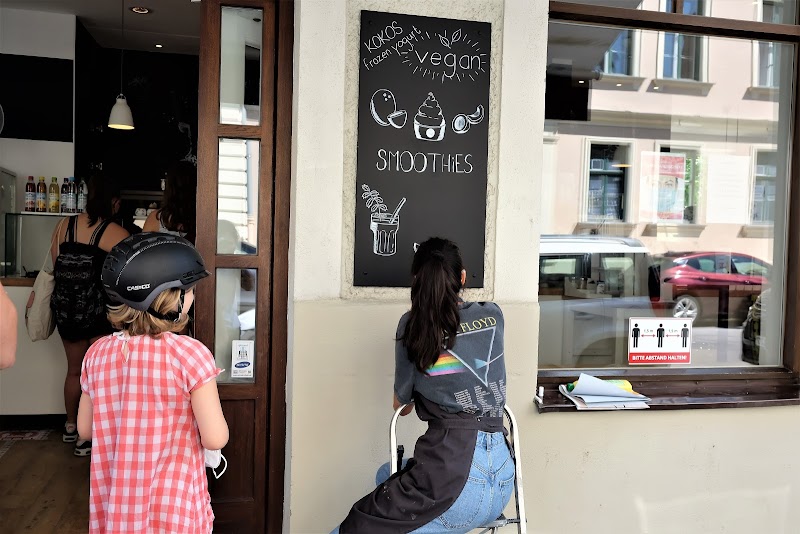 KOKOS
Frozen Yogurt
vegan
SMOOTHIES
CASCO
FLOYD
BITTE ABSTAND HALTEN!